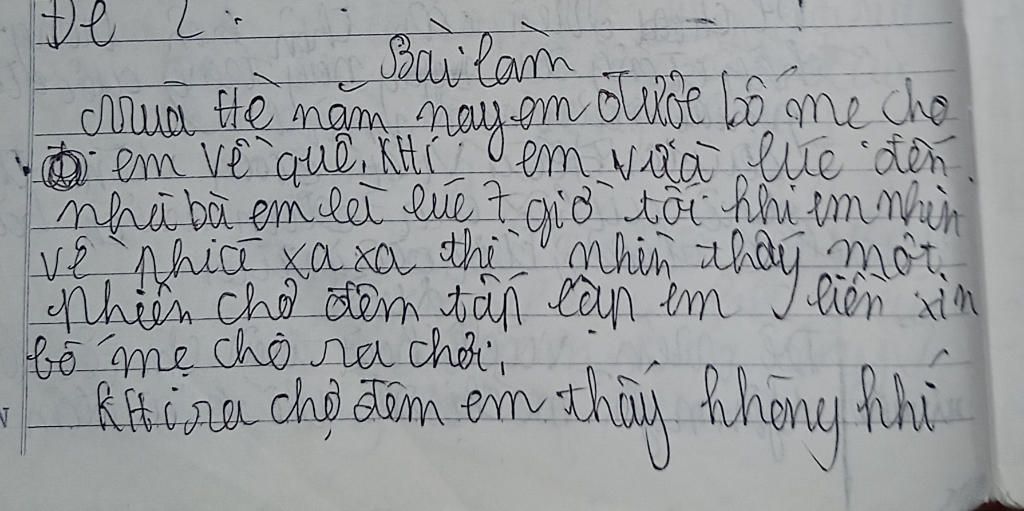 Đề 2:
Bài làm
Mùa Hè năm nay em được bố mẹ cho
em về quê. KHi em vừa lúc đến
nhà bà em lài lúc 7 giờ tối khi em nhìn
về phiá xa xa thì nhìn thấy một
phiên chợ đêm tấp lập em liền xin
bố mẹ chô ra chơi,
KHi ra chợ đêm em thấy không khí